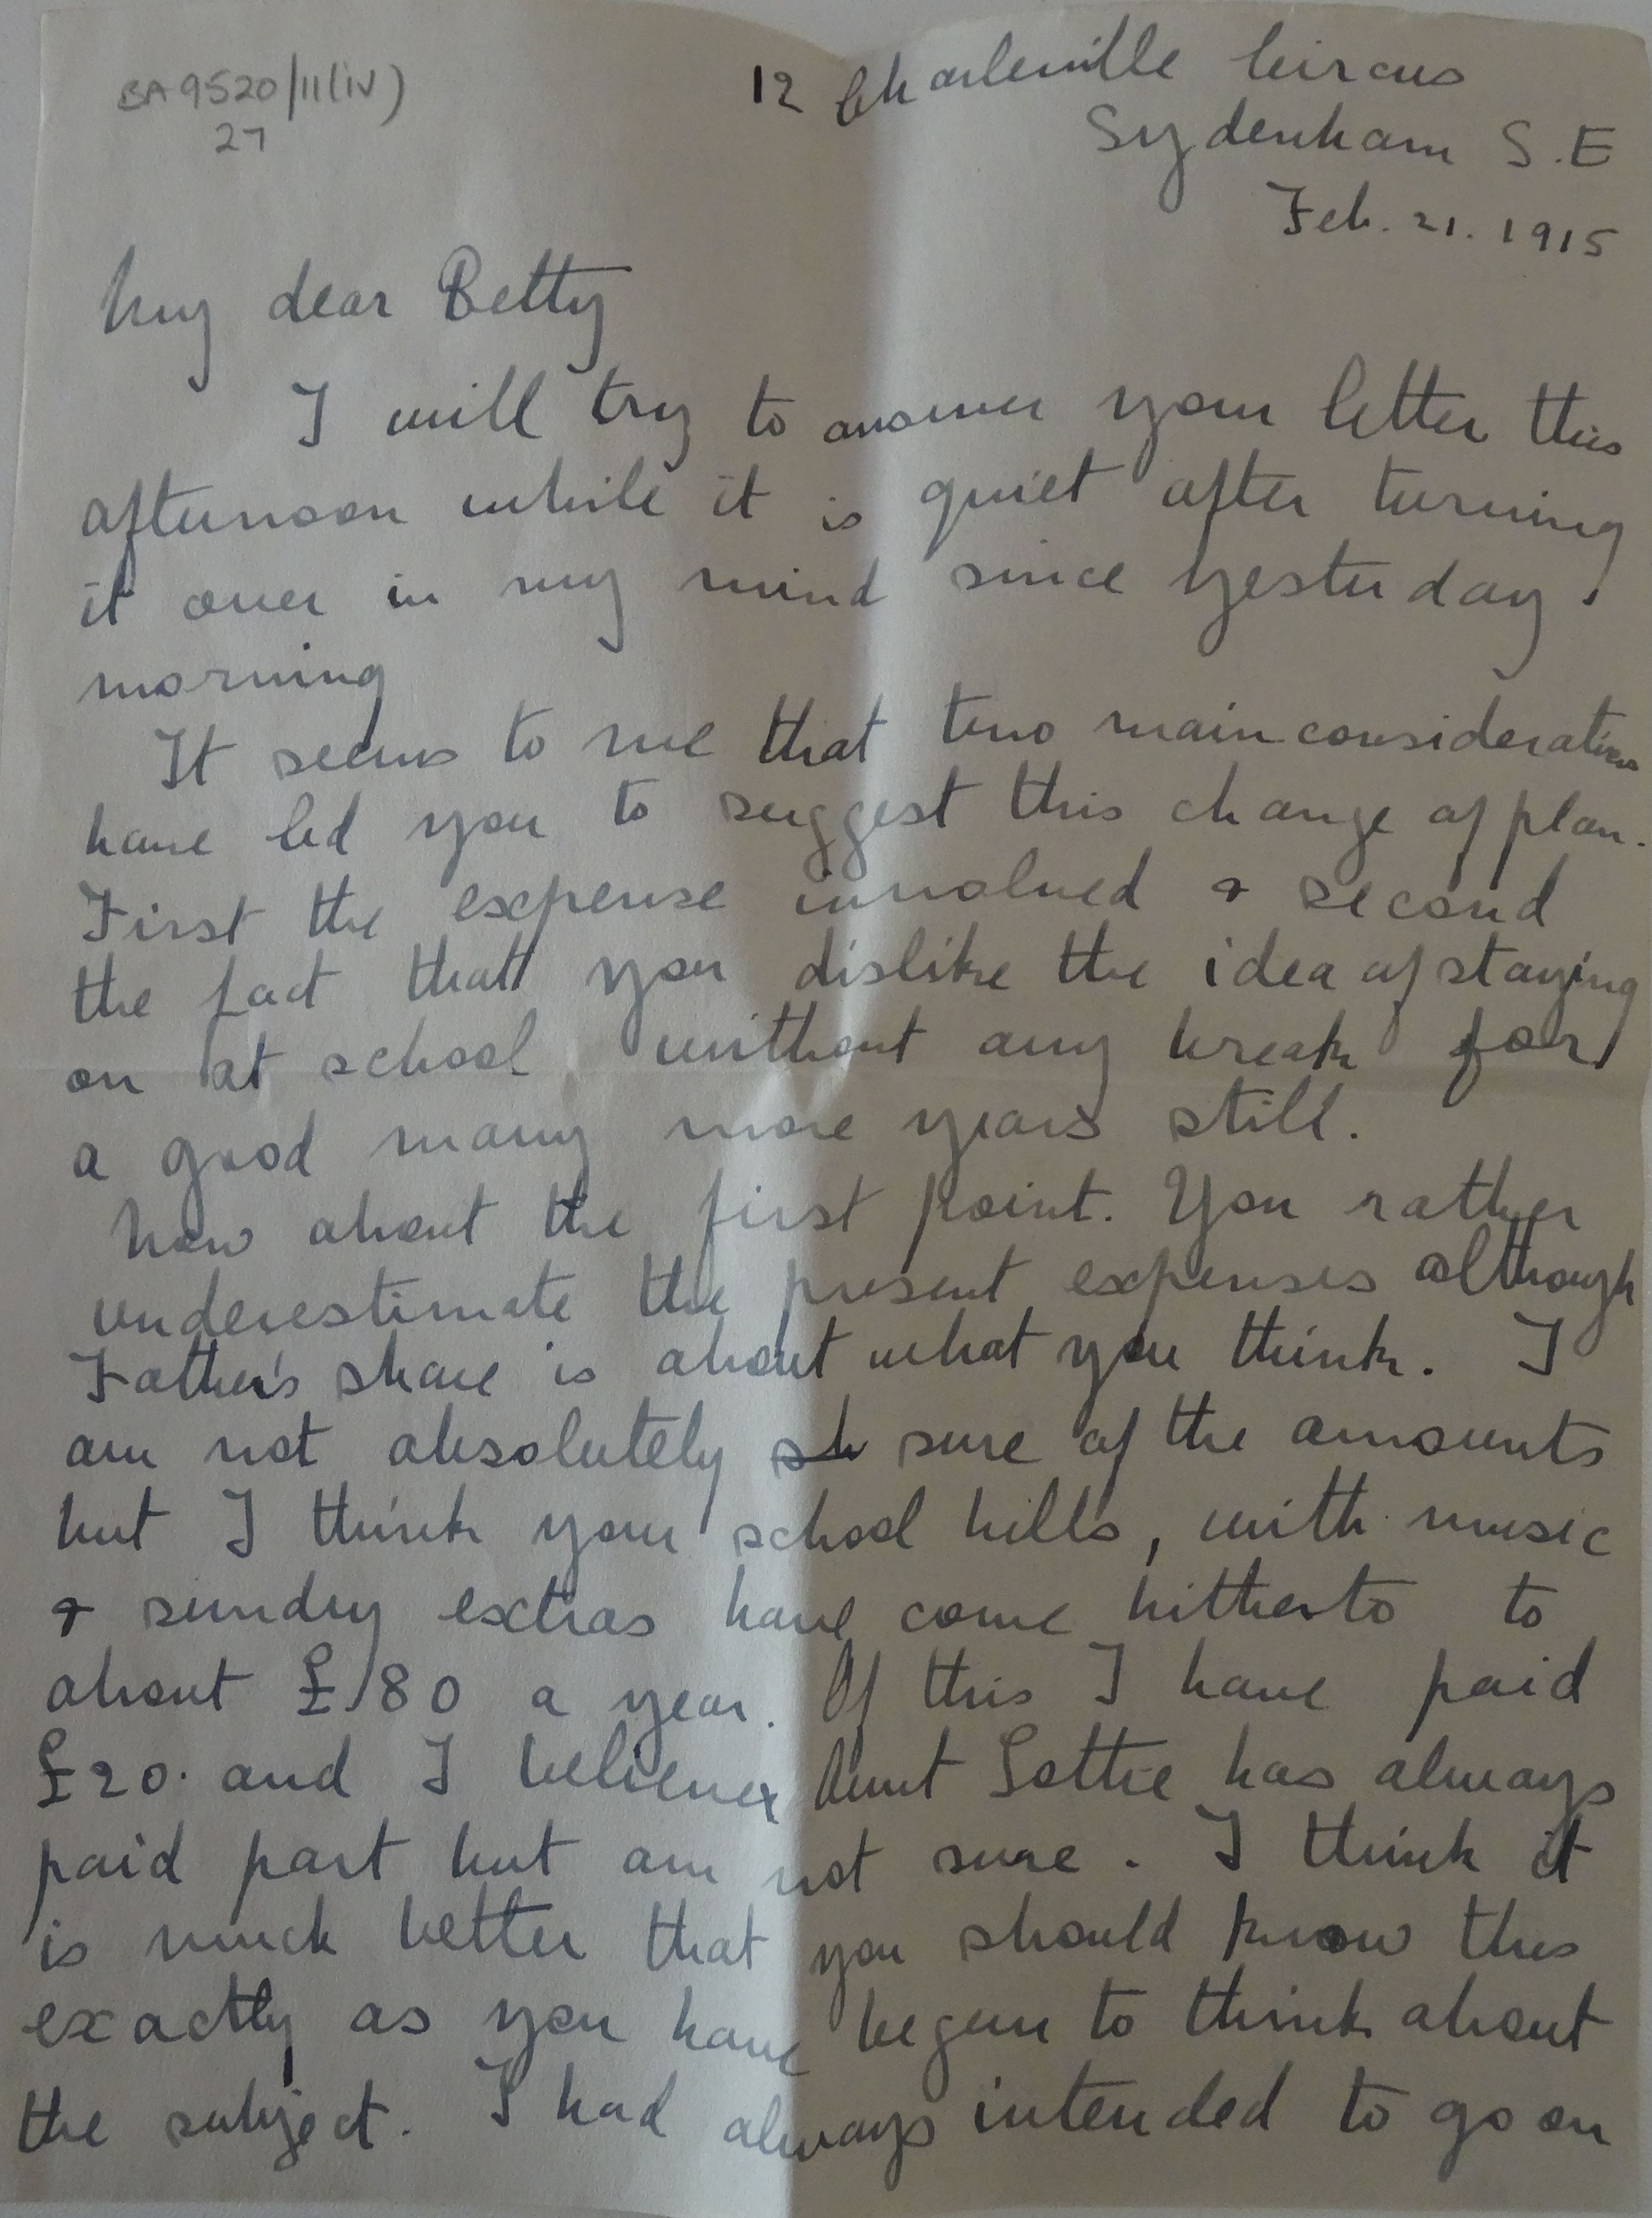 BA9520/11(iv)
27
12 Charleville Circus
Sydenham S.E
Feb. 21. 1915
My dear Betty
I will try to answer your letter this
afternoon while it is quiet after turning
it over in my mind since yesterday
morning
It seems to me that two main considerations
have led you to suggest this change of plan.
First the expense involved & second
the fact that you dislike the idea of staying
on at school without any break for
a good many more years still.
Now about the first point. You rather
underestimate the present expenses although
Father's share is about what you think. I
am not absolutely sh sure of the amounts
but I think your school bills, with music
& sundry extras have come hitherto to
about £80 a year. Of this I have paid
£20. and I believe Aunt Lottie has always
paid part but am not sure. I think it
is much better that you should know this
exactly as you have begun to think about
the subject. I had always intended to go on